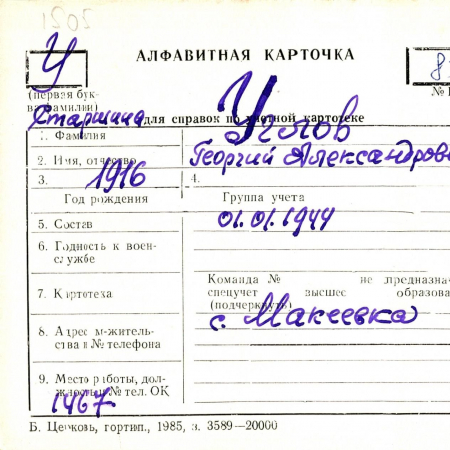 1505
У
АЛФАВИТНАЯ КАРТОЧКА
8
(первая бук-
ва фамилии)
№
Старшина для справок по учетной картотеке
1. Фамилия Углов
2. Имя, отчество Георгий Александрови
3. 1916 4.
Год рождения Группа учета
5. Состав 01.01.1944
6. Годность к воен-
службе
Команда № не предназна
7. Картотека спецучет высшее образова
(подчеркнуть)
с. Макеевка
8. Адрес м-житель-
ства и № телефона
9. Место работы, дол-
жность и № тел. ОК
1467
Б. Церковь, гортип., 1985, з. 3589—20000